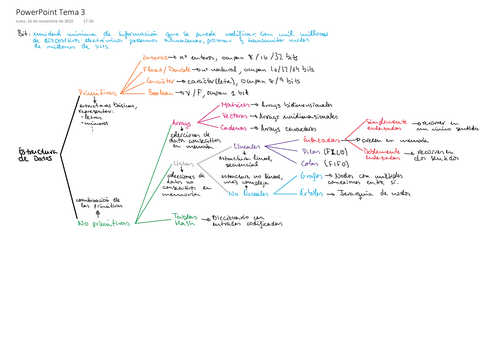 PowerPoint Tema 3
lunes, 16 de noviembre de 2020 17:30
Bit: unidad mínima de información que se puede codificar. Con mil millones
de dispositivos electrónicos podemos almacenar, procesar y transmitir miles
de millones de bits.
Estructura
de Datos
Primitivos
estructuras básicas,
representar:
- letras
- números
Enteros → nº enteros, ocupan 8/16/32 bits
Float/Double → nº natural, ocupan 16/32/64 bits
Carácter → carácter (letra), ocupan 8/9 bits
Boolean → V/F, ocupan 1 bit
combinación de
los primitivos
No primitivos
Arrays
colecciones de
datos consecutivos
en memoria
Matrices → Arrays bidimensionales
Vectores → Arrays unidimensionales
Cadenas → Arrays caracteres
Listas
colecciones de
datos no
consecutivos en
memoria
Lineales
estructura lineal,
secuencial
Enlazadas
crecen en memoria
Simplemente
enlazadas → recorrer en
un único sentido
Doblemente
enlazadas → recorrer en
dos sentidos
Pilas [FILO]
Colas [FIFO]
estructura no lineal,
más compleja
No lineales
Grafos → Nodos con múltiples
conexiones entre sí.
Árboles → Jerarquía de nodos.
Tablas
Hash → Diccionario con
entradas codificadas